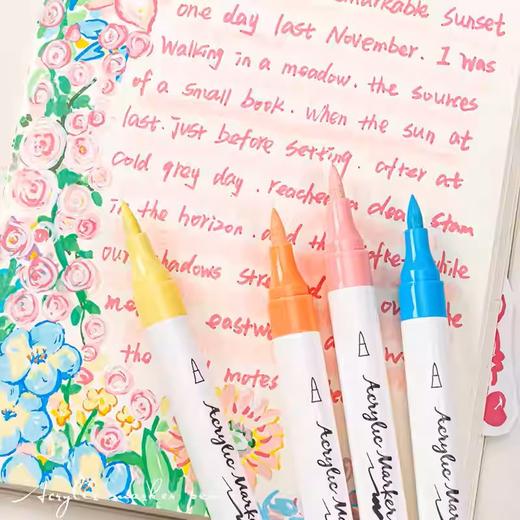 remarkable sunset
one day last November. I was
Walking in a meadow. the sources
of a small book. when the sun at
last. just before setting. after at
cold grey day. reached a clear stam
in the horizon. and the softest while
our shadows
eastw
the motes
Acrylic Marker
Acrylic M
Acrylic Ma
Acrylic Marker
Acrylic marker pen